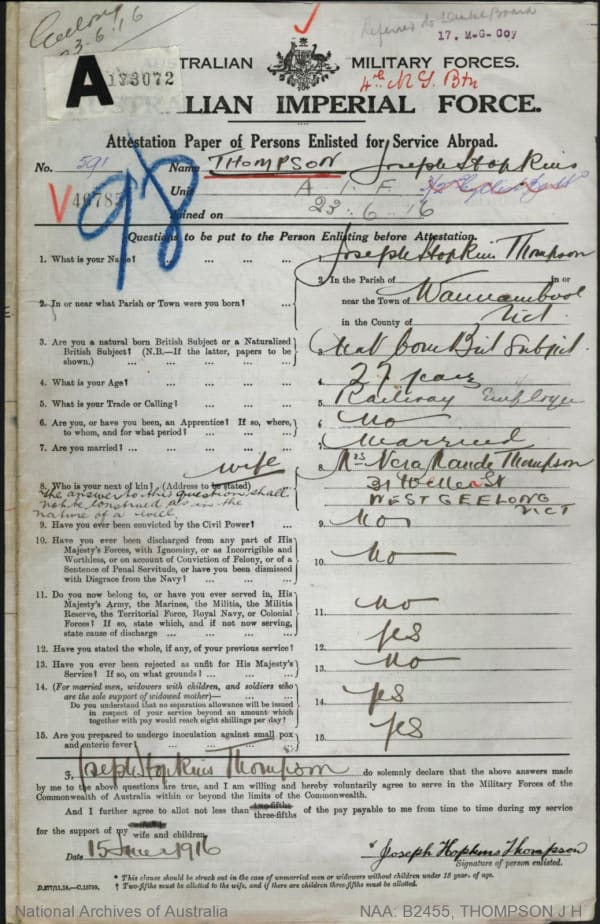 Geelong
23.6.16
Referred to Board
17. M-G-Coy
A
173072
AUSTRALIAN MILITARY FORCES.
4th M G Btn
AUSTRALIAN IMPERIAL FORCE.
Attestation Paper of Persons Enlisted for Service Abroad.
No. 591 Name THOMPSON Joseph Hopkins
V 49785
98
Unit A I F
Joined on 23.6.16
Questions to be put to the Person Enlisting before Attestation.
1. What is your Name? ... ... ... 1. Joseph Hopkins Thompson
2. In or near what Parish or Town were you born? ... 2. In the Parish of in or
near the Town of Warrnambool
in the County of Vict
3. Are you a natural born British Subject or a Naturalized
British Subject? (N.B.—If the latter, papers to be
shown.) ... ... ... 3. Nat born Brit Subject.
4. What is your Age? ... ... ... 4. 27 years
5. What is your Trade or Calling? ... ... ... 5. Railway Employee
6. Are you, or have you been, an Apprentice? If so, where,
to whom, and for what period? ... ... ... 6. No
7. Are you married? ... ... ... 7. Married
wife
8. Who is your next of kin? (Address to be stated) 8. Mrs Vera Maude Thompson
31 Weller St
WEST GEELONG
VICT
The answer to this question shall
not be construed as in the
nature of a will.
9. Have you ever been convicted by the Civil Power? ... 9. No
10. Have you ever been discharged from any part of His
Majesty's Forces, with Ignominy, or as Incorrigible and
Worthless, or on account of Conviction of Felony, or of a
Sentence of Penal Servitude, or have you been dismissed
with Disgrace from the Navy? ... ... ... 10. No
11. Do you now belong to, or have you ever served in, His
Majesty's Army, the Marines, the Militia, the Militia
Reserve, the Territorial Force, Royal Navy, or Colonial
Forces? If so, state which, and if not now serving,
state cause of discharge ... ... ... 11. No
12. Have you stated the whole, if any, of your previous service? 12. yes
13. Have you ever been rejected as unfit for His Majesty's
Service? If so, on what grounds? ... ... ... 13. No
14. (For married men, widowers with children, and soldiers who
are the sole support of widowed mother)—
Do you understand that no separation allowance will be issued
in respect of your service beyond an amount which
together with pay would reach eight shillings per day? 14. yes
15. Are you prepared to undergo inoculation against small pox
and enteric fever ... ... ... 15. yes
I, Joseph Hopkins Thompson do solemnly declare that the above answers made
by me to the above questions are true, and I am willing and hereby voluntarily agree to serve in the Military Forces of the
Commonwealth of Australia within or beyond the limits of the Commonwealth.
And I further agree to allot not less than two-fifths three-fifths of the pay payable to me from time to time during my service
for the support of my wife wife and children
Date 15 June 1916
Joseph Hopkins Thompson
Signature of person enlisted.
* This clause should be struck out in the case of unmarried men or widowers without children under 18 years of age.
† Two-fifths must be allotted to the wife, and if there are children three-fifths must be allotted.
National Archives of Australia
NAA: B2455, THOMPSON J H